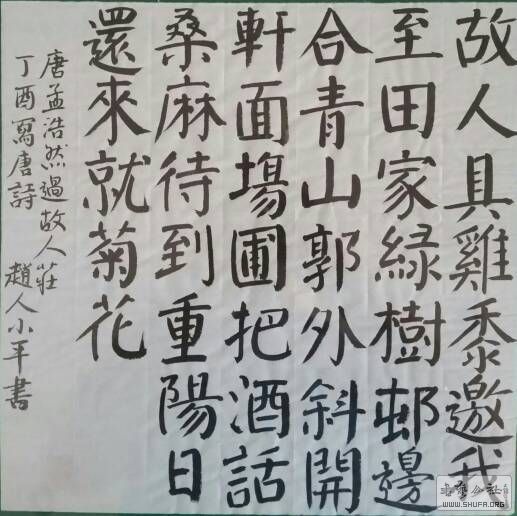 故人具雞黍邀我
至田家綠樹邨邊
合青山郭外斜開
軒面場圃把酒話
桑麻待到重陽日
還來就菊花
唐孟浩然過故人莊
丁酉寫唐詩 趙人小平書
WWW.SHUFA.ORG